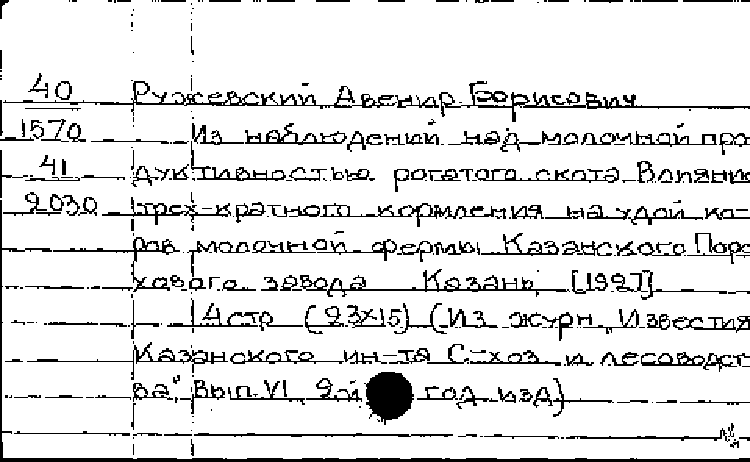 40 Ружевский, Авенир Борисович
1570 Из наблюдений над молочной про
41 дуктивностью рогатого скота Влияние
2030 трех-кратного кормления на удой ко-
ров молочной фермы Казанского Поро
хового завода Казань, [1927]
4 стр (23х15) (Из журн „Известия
Казанского ин-та С-хоз и лесоводст
ва", Вып. VI 2ой год изд)